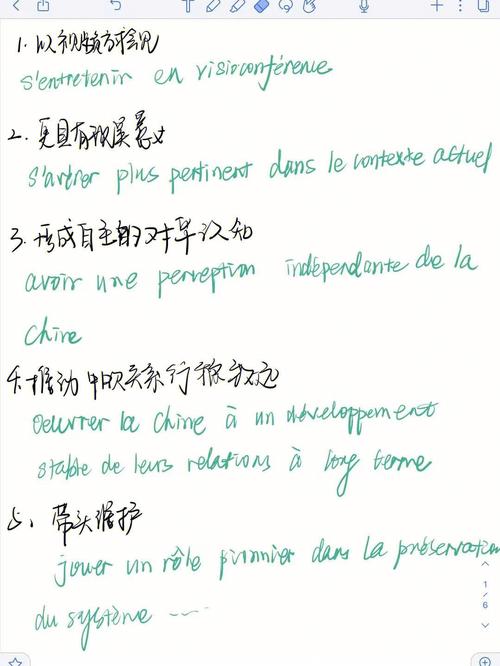 1. 以视频方式会见
s'entretenir en visioconférence
2. 更具有现实意义
s'avérer plus pertinent dans le contexte actuel
3. 形成自主的对华认知
avoir une perception indépendante de la
Chine
4. 推动中欧关系行稳致远
Oeuvrer la Chine à un développement
stable de leurs relations à long terme
5、带头维护
jouer un rôle pionnier dans la préservation
du système ……
1
/
6